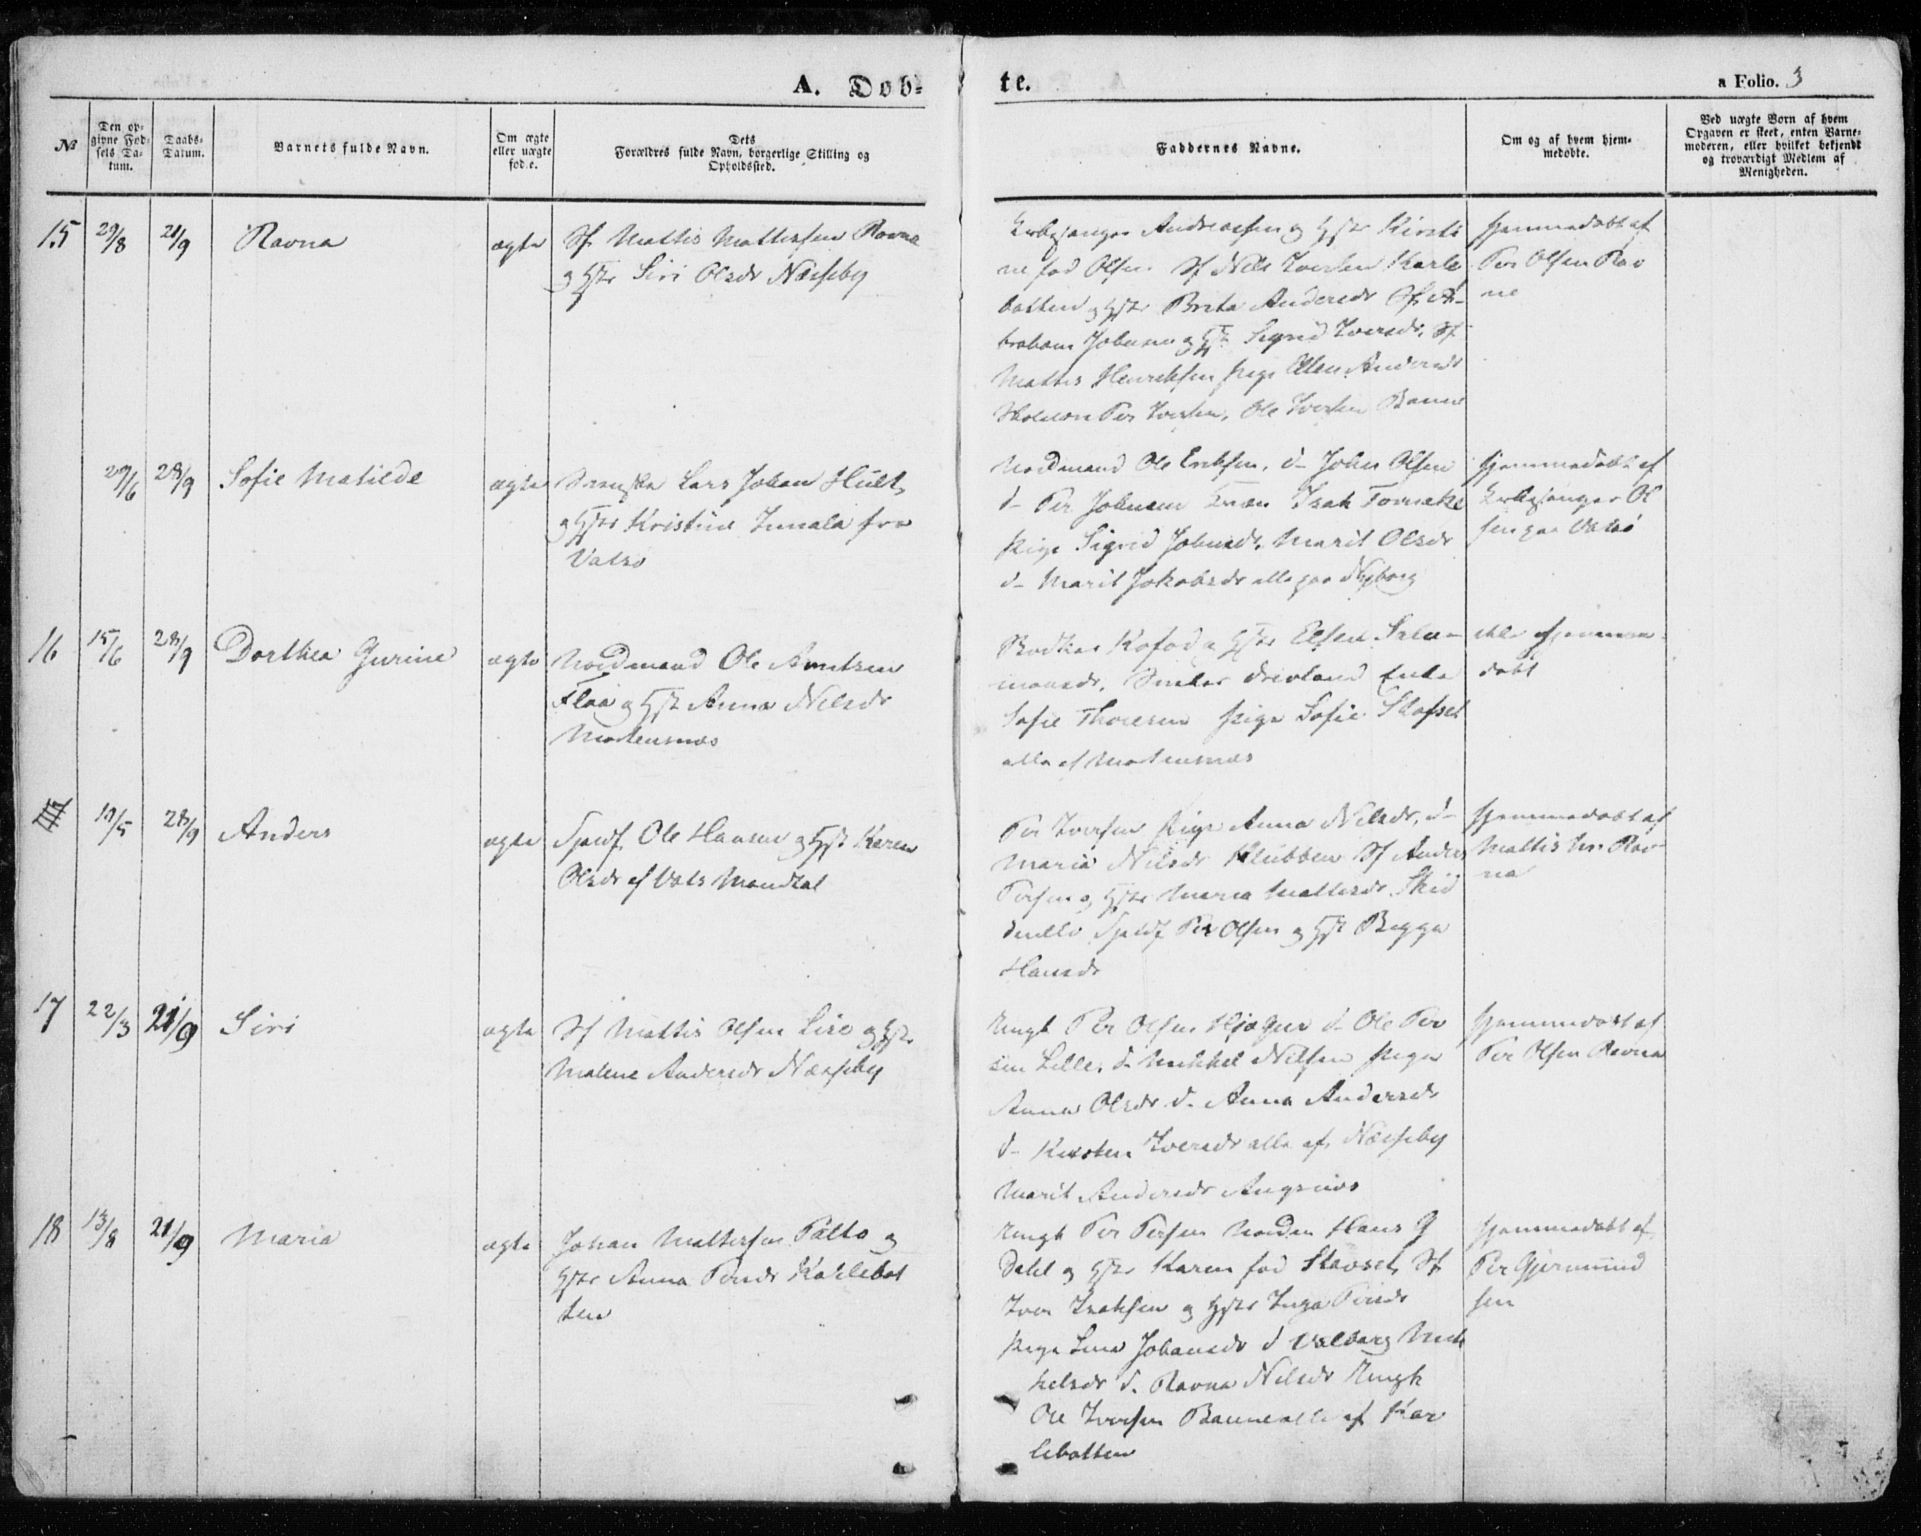 A. Døb-
te.
a Folio. 3
№
Den op-
givne Fød-
sels Da-
tum.
Daabs-
Datum.
Barnets fulde Navn.
Om ægte
eller uægte
fød.e.
Dets
Forældres fulde Navn, borgerlige Stilling og
Opholdssted.
Faddernes Navne.
Om og af hvem hjem-
medøbte.
Ved uægte Børn af hvem
Opgaven er skeet, enten Barne-
moderen, eller hvilket bekjendt
og troværdigt Medlem af
Menigheden.
15 29/8 21/9 Ravna ægte
Sf. Mattis Mattesen Ravna
og Hstr Siri Olsdr Næsseby
Kirkesanger Andreassen og Hstr Kirsti
ne fød Olsen Sf Nils Iversen Karle
botten og Hstr Brita Andersdr Sf. A-
braham Johnsen og Hstr Sigrid Iversdr. Sf.
Mattis Henriksen Pige Ellen Andersdr
Per Iversen, Ole Iversen Banne
Hjemmedøbt af
Per Olsen Rav
na
29/6 28/9 Sofie Matilde ægte
Svenske Lars Johan Hult,
og Hstr Kristine Innala fra
Vadsø
Nordmand Ole Eriksen, d- John Olsen
d- Per Johnsen Kvæn Isak
Pige Sigrid Johnsdr, Marit Olsdr
d- Marit Jakobsdr alle paa Nyborg
Hjemmedøbt af
Kirkesanger Ol
sen paa Vadsø
16 15/6 28/9 Dorthea Gurine ægte
Nordmand Ole Arntsen
Flaa og Hstr Anna Nilsdr
Mortensnæs
Bødker Kofod og Hstr Elsen Salo-
monsdr. Enke
Sofie Thoresen Pige Sofie Stafset
alle af Mortensnæs
ikke hjemme-
døbt
10/5 28/9 Anders ægte
Fjeldf. Ole Hansen og Hstr Karen
Olsdr af Vads Mandtal
Per Iversen Pige Anna Nilsdr, d-
Maria Nilsdr Klubben Sf Anders
Persen og Hstr Maria Mattesdr,
Fjeldf Per Olsen og Hstr Bigga
Hansdr
Hjemmedøbt af
Mattis M. Rav-
na
17 22/3 21/9 Siri ægte
Sf Mattis Olsen Siro og Hstr.
Malene Andersdr Næsseby
Ungk Per Olsen d- Ole Per
sen Lille, d- Mikkel Nilsen Pigen
Anna Olsdr d- Anna Andersdr
d- Kirsten Iversdr alle af Næsseby
Marit Andersdr Angsnæs
Hjemmedøbt af
Per Olsen Ravna
18 13/8 21/9 Maria ægte
Johan Mattesen Palto og
Hstr Anna Persdr Karlebot
ten
Ungk Per Persen Nordm Hans G
Dahl og Hstr Karen fød Stavset, Sf.
Iver Isaksen og Hstr Inga Persdr
Pige Lina Johansdr d Valborg Mik
kelsdr d. Ravna Nilsdr Ungk
Ole Iversen Banne alle af Kar
lebotten
Hjemmedøbt af
Per Gjermund
sen